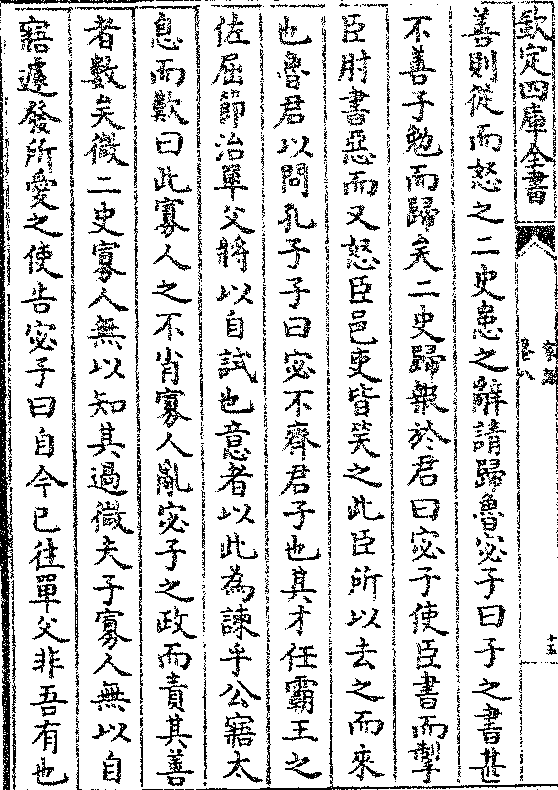 欽定四庫全書
卷八
十五
善則從而怒之二史患之辭請歸魯宓子曰子之書甚
不善子勉而歸矣二史歸報於君曰宓子使臣書而掣
臣肘書惡而又怒臣邑吏皆笑之此臣所以去之而來
也魯君以問孔子子曰宓不齊君子也其才任霸王之
佐屈節治單父將以自試也意者以此為諫乎公寤太
息而歎曰此寡人之不肖寡人亂宓子之政而責其善
者數矣微二史寡人無以知其過微夫子寡人無以自
寤遽發所愛之使告宓子曰自今已往單父非吾有也